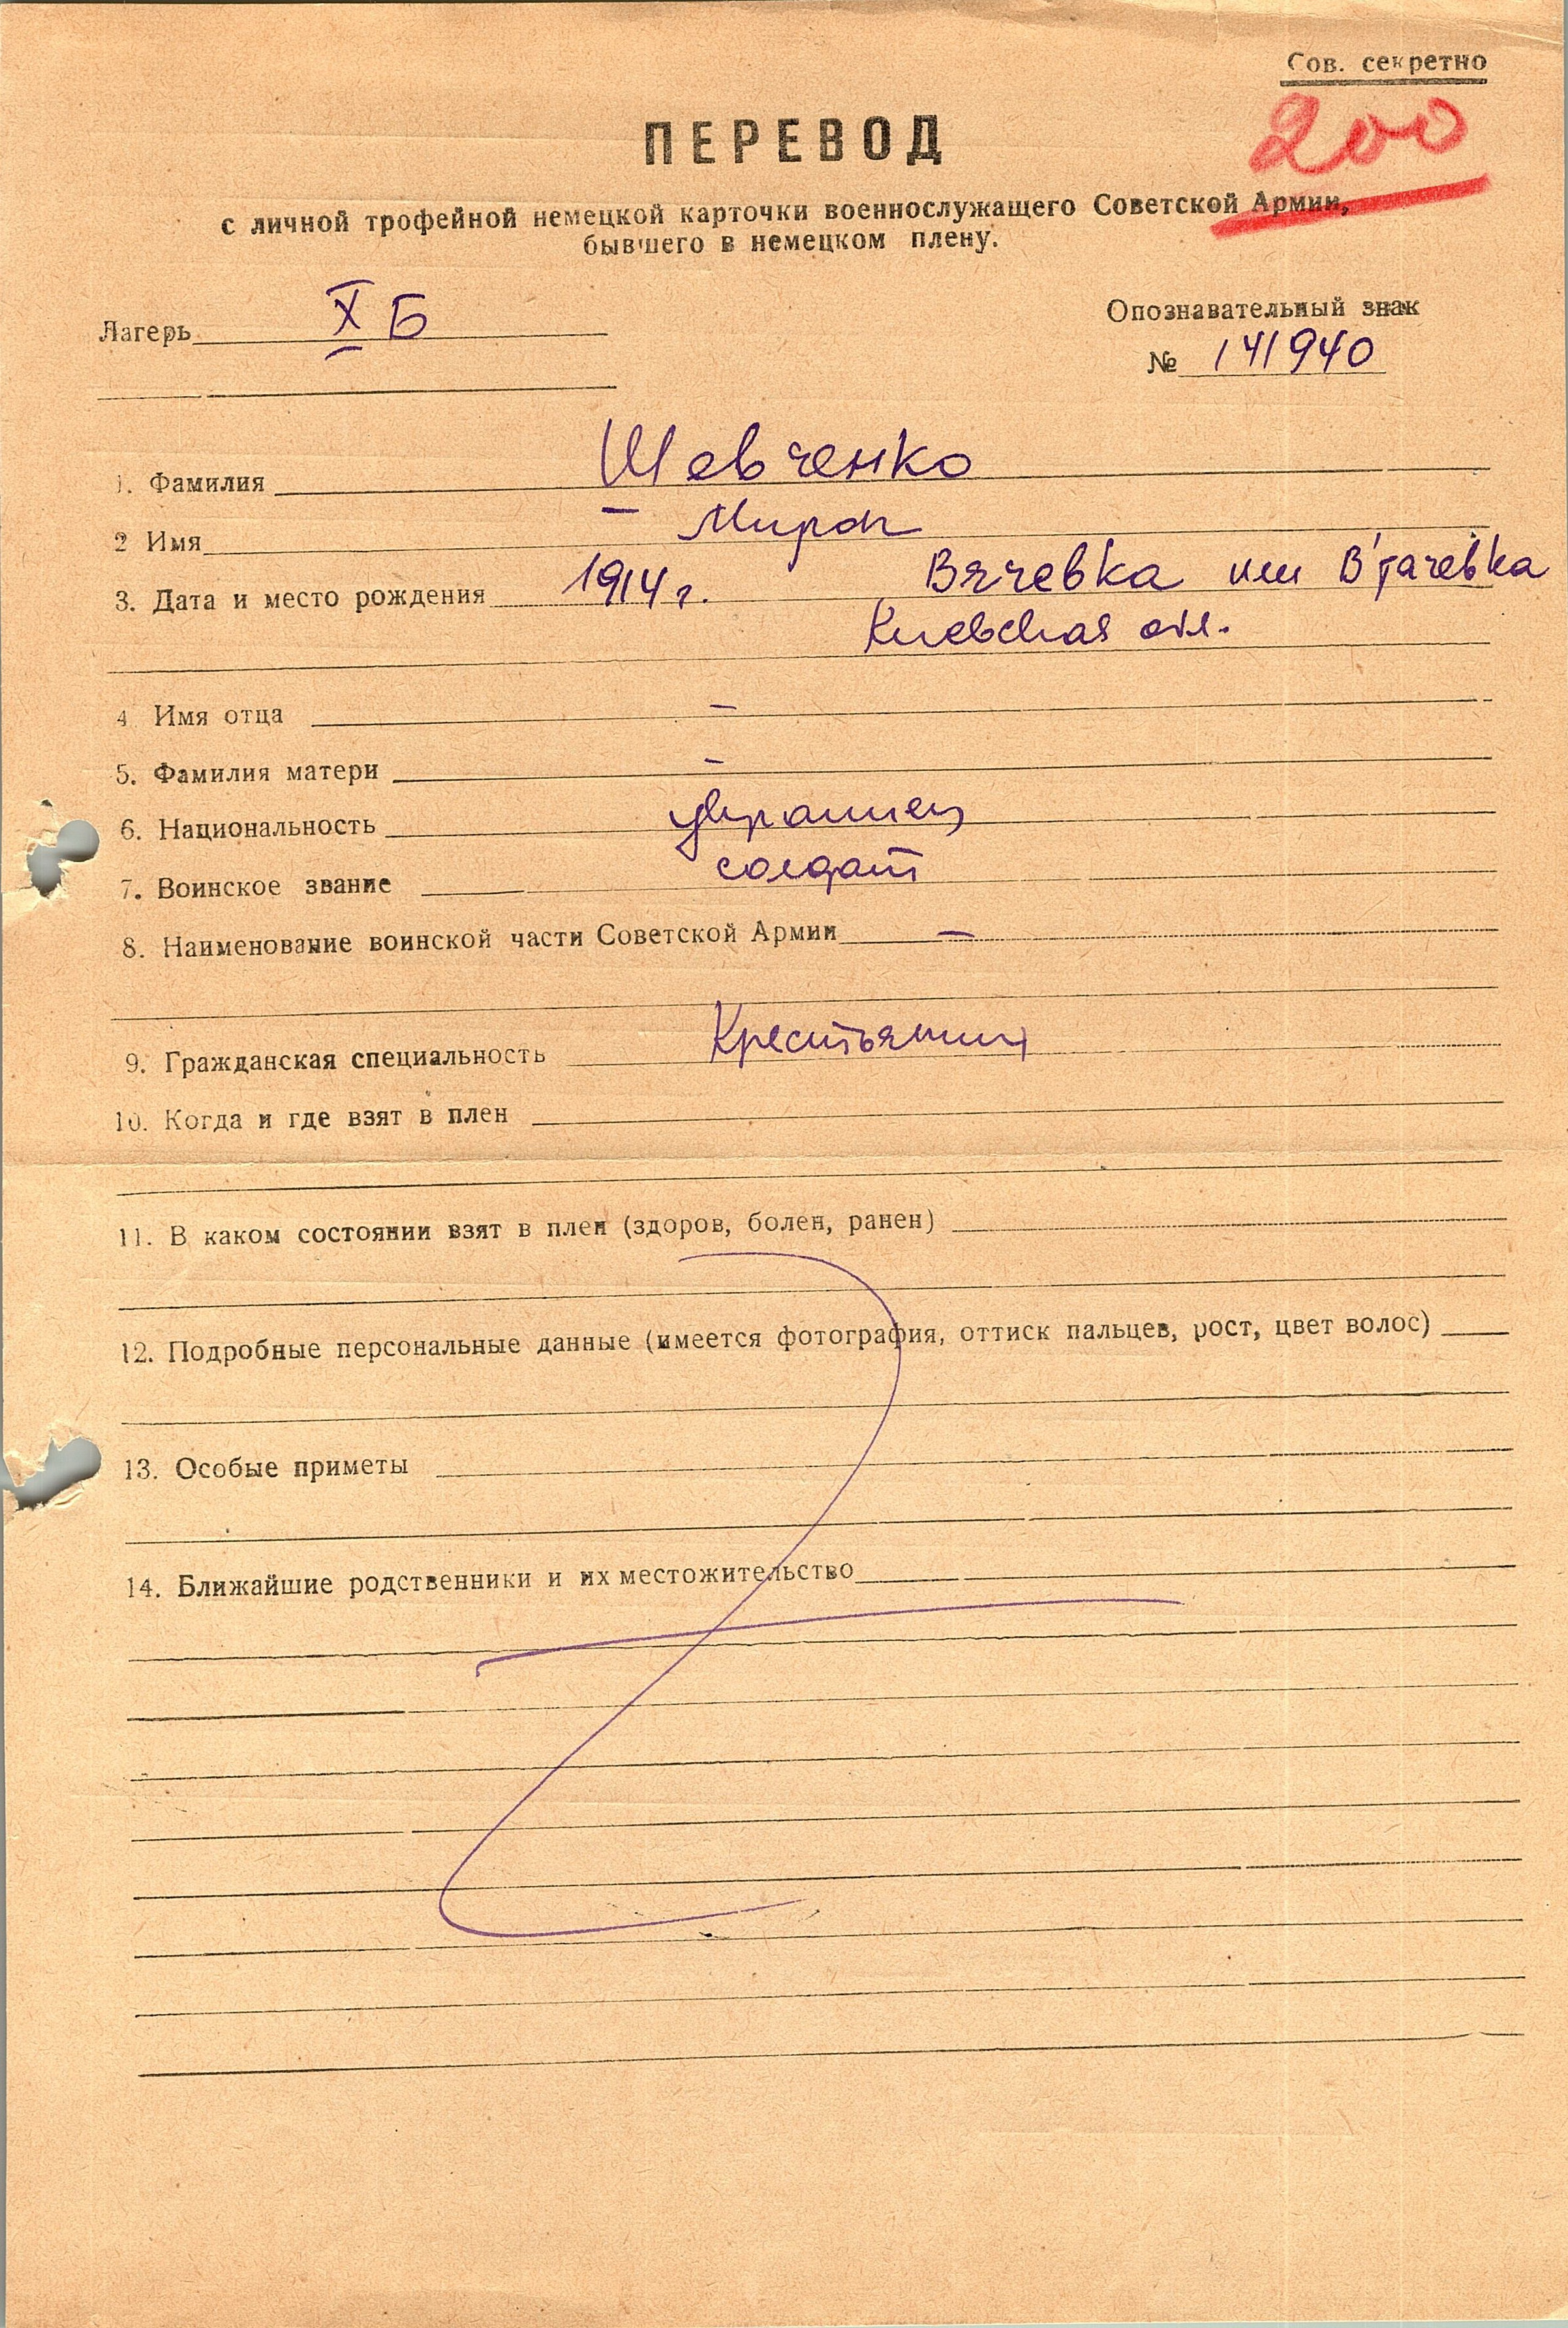 Сов. секретно
200
ПЕРЕВОД
с личной трофейной немецкой карточки военнослужащего Советской Армии,
бывшего в немецком плену.
Лагерь X Б
Опознавательный знак
№ 141940
1. Фамилия Шевченко
2 Имя Мирон
3. Дата и место рождения 1914 г. Вячевка или В'тачевка
Киевская обл.
4 Имя отца –
5. Фамилия матери –
6. Национальность украинец
7. Воинское звание солдат
8. Наименование воинской части Советской Армии –
9. Гражданская специальность Крестьянин
10. Когда и где взят в плен
11. В каком состоянии взят в плен (здоров, болен, ранен)
12. Подробные персональные данные (имеется фотография, оттиск пальцев, рост, цвет волос)
13. Особые приметы
14. Ближайшие родственники и их местожительство